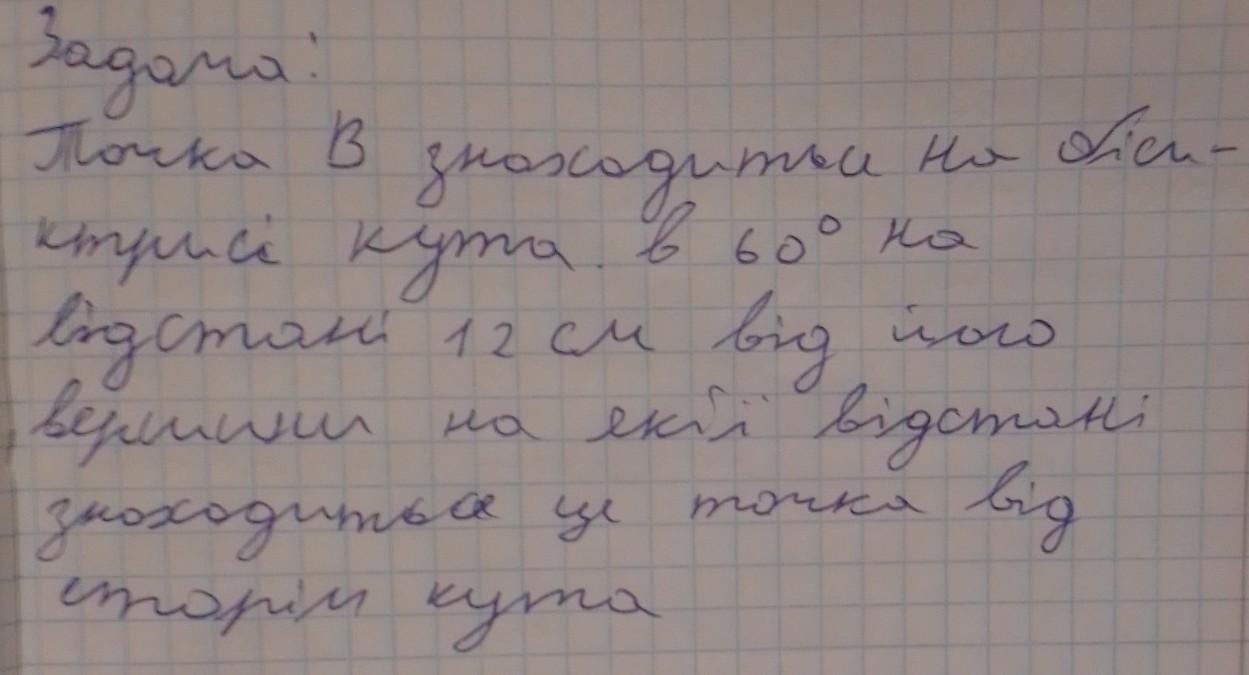 Задача:
Точка В знаходиться на біси-
ктрисі кута в 60° на
відстані 12 см від його
вершини на якій відстані
знаходиться ця точка від
сторін кута